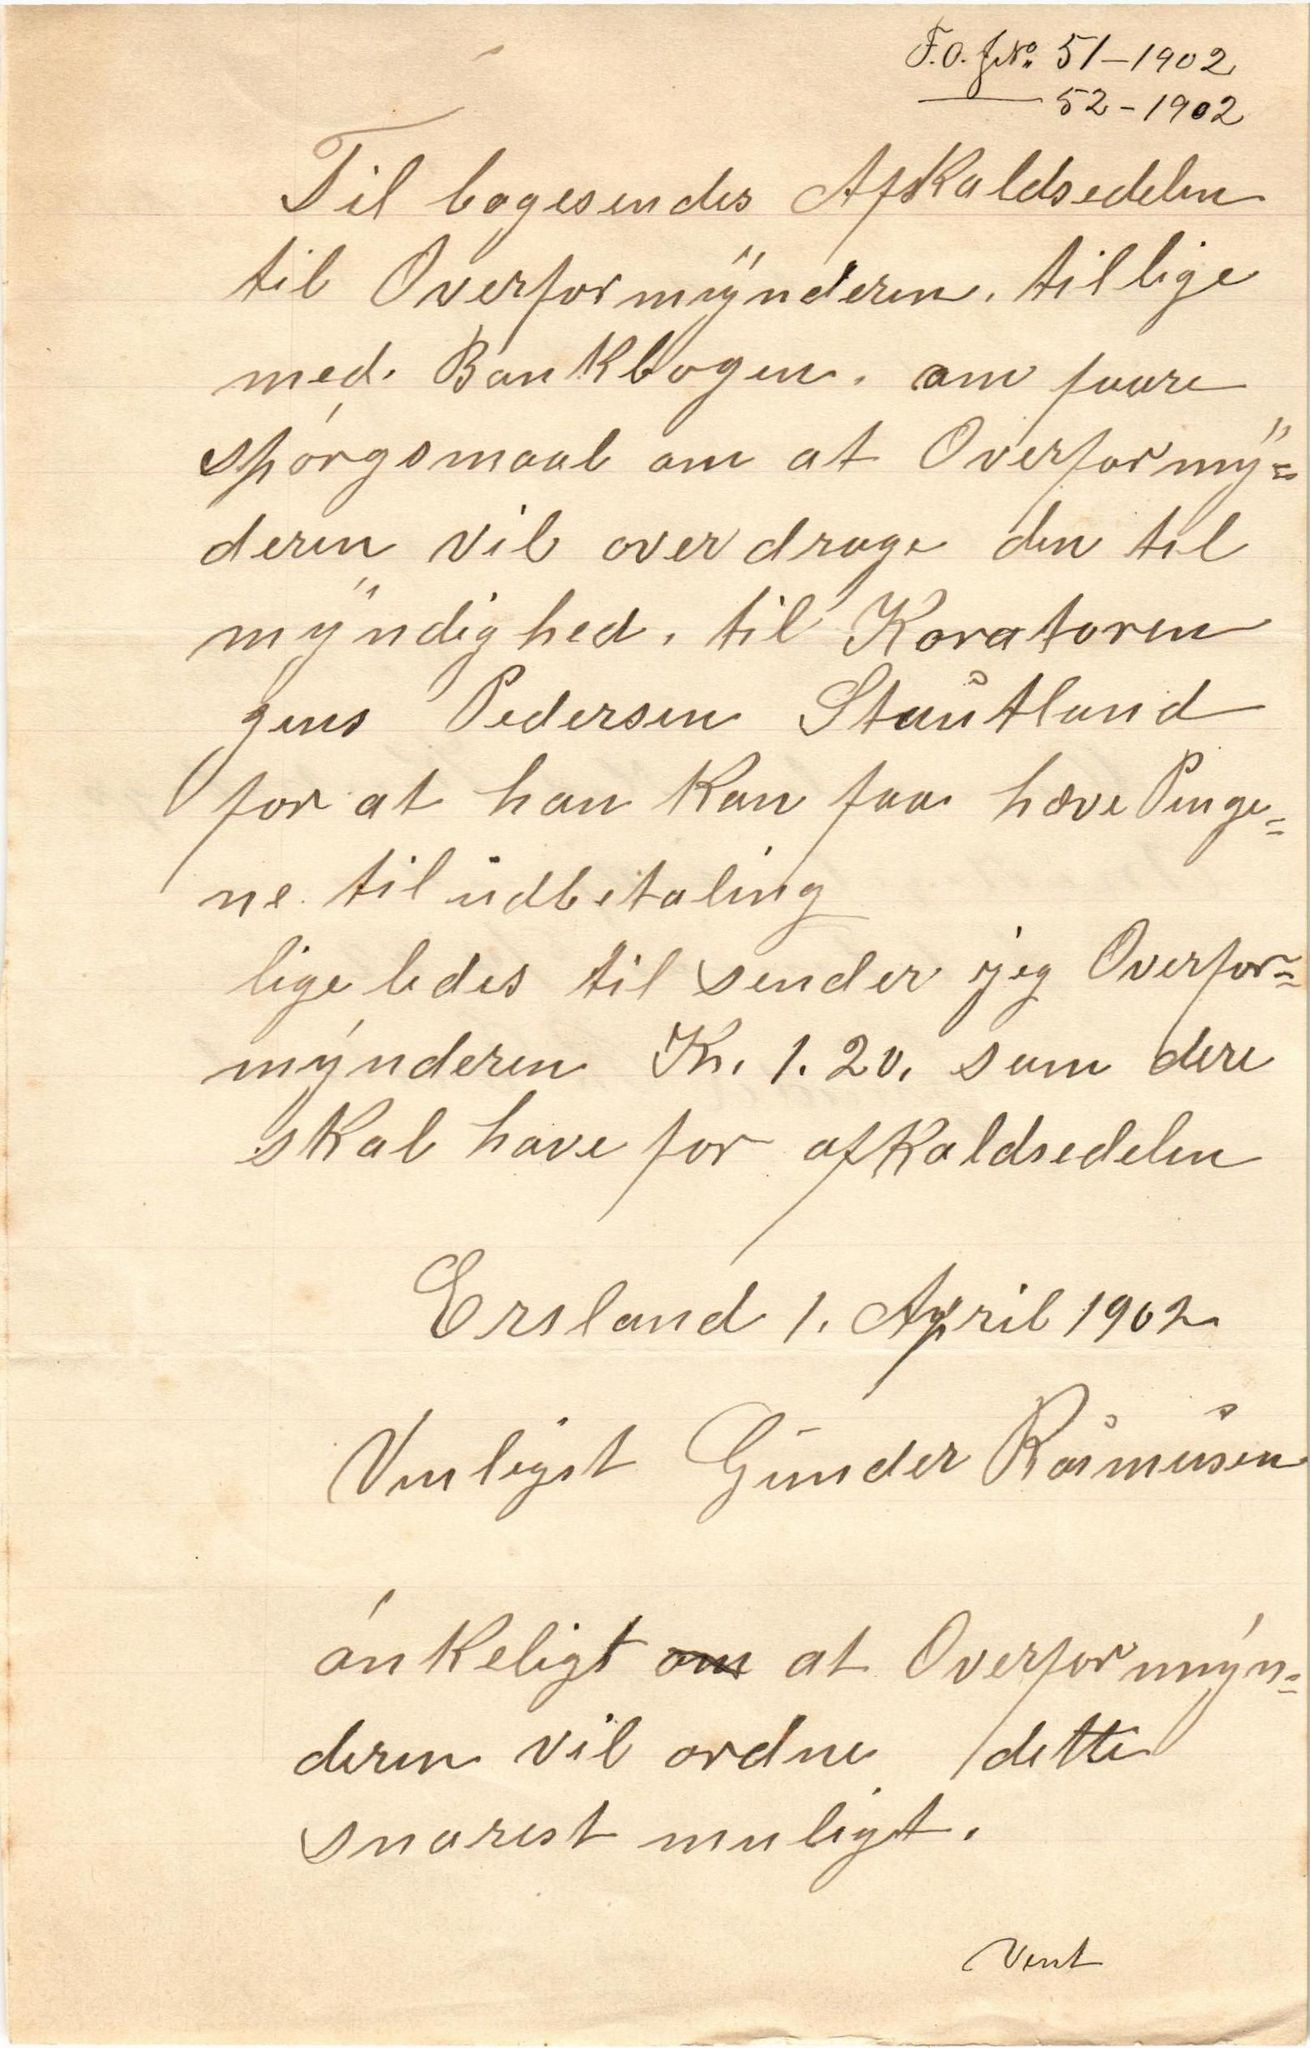 F.O. J.No. 51-1902
— 52-1902
Til bagesendes Afkaldsedelen
til Overformÿnderen. tillige
med. Bankbogen. om faare
spórgsmaal om at Overformÿ=
deren vil over drage den til
mÿndighed. til Koratoren
gens Pedersen Stautland
for at han kan faa hæve Penge=
ne. til udbetaling
lige ledes til sender jeg Overfor=
mýnderen Kr. 1.20. som dere
skal have for afkaldsedelen
Ersland 1. April 1902
Venligst Gunder Rasmusen
ónkeligt om at Overformýn=
deren vil ordne dette
snarest muligt.
Vent